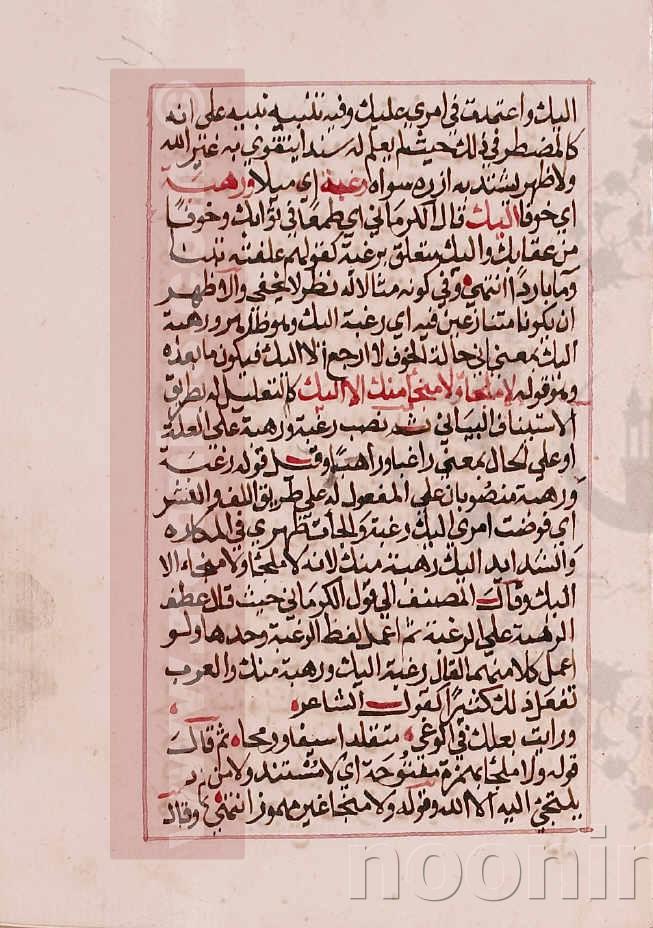 اليك واعتمدت في امري عليك وفيه تنبيه نبيه على انه
كالمضطر في ذلك حيث لم يعلم له سندا يتقوى به غير الله
ولا ظهر يشتد به ازره سواه رغبة اي ميلا ورهبة
اي خوفا اليك قال الكرماني اي طمعا في ثوابك وخوفا
من عقابك واليك متعلق برغبة كقولهم علفته تبنا
وماء باردا انتهى وفي كونه مثالا له نظر لا يخفى والاظهر
ان يكونا متنازعين فيه اي رغبة اليك وهو ظاهر ورهبة
اليك بمعنى اني حالة الخوف لا ارجع الا اليك فيكون ما بعده
وهو قوله لا ملجأ ولا منجا منك الا اليك كالتعليل له بطريق
الاستيناف البياني ثم نصب رغبة ورهبة على العلة
او على الحال بمعنى راغبا وراهبا وقيل قوله رغبة
ورهبة منصوبان على المفعول له على طريق اللف والنشر
اي فوضت امري اليك رغبة والجأت ظهري في المكاره
والشدايد اليك رهبة منك لانه لا ملجأ ولا منجاء الا
اليك وقال المصنف الى قول الكرماني حيث قال عطف
الرهبة على الرغبة ثم اعمل لفظ الرغبة وحدها ولو
اعمل كلا منهما لقال رغبة اليك ورهبة منك والعرب
تفعل ذلك كثيرا كقول الشاعر
ورايت بعلك في الوغى متقلدا سيفا ورمحا ثم قال
قوله ولا ملجأ بهمزة مفتوحة اي لا مستند ولا من
يلتجئ اليه الا الله وقوله ولا منجا غير مهموز انتهى وقال
noonin